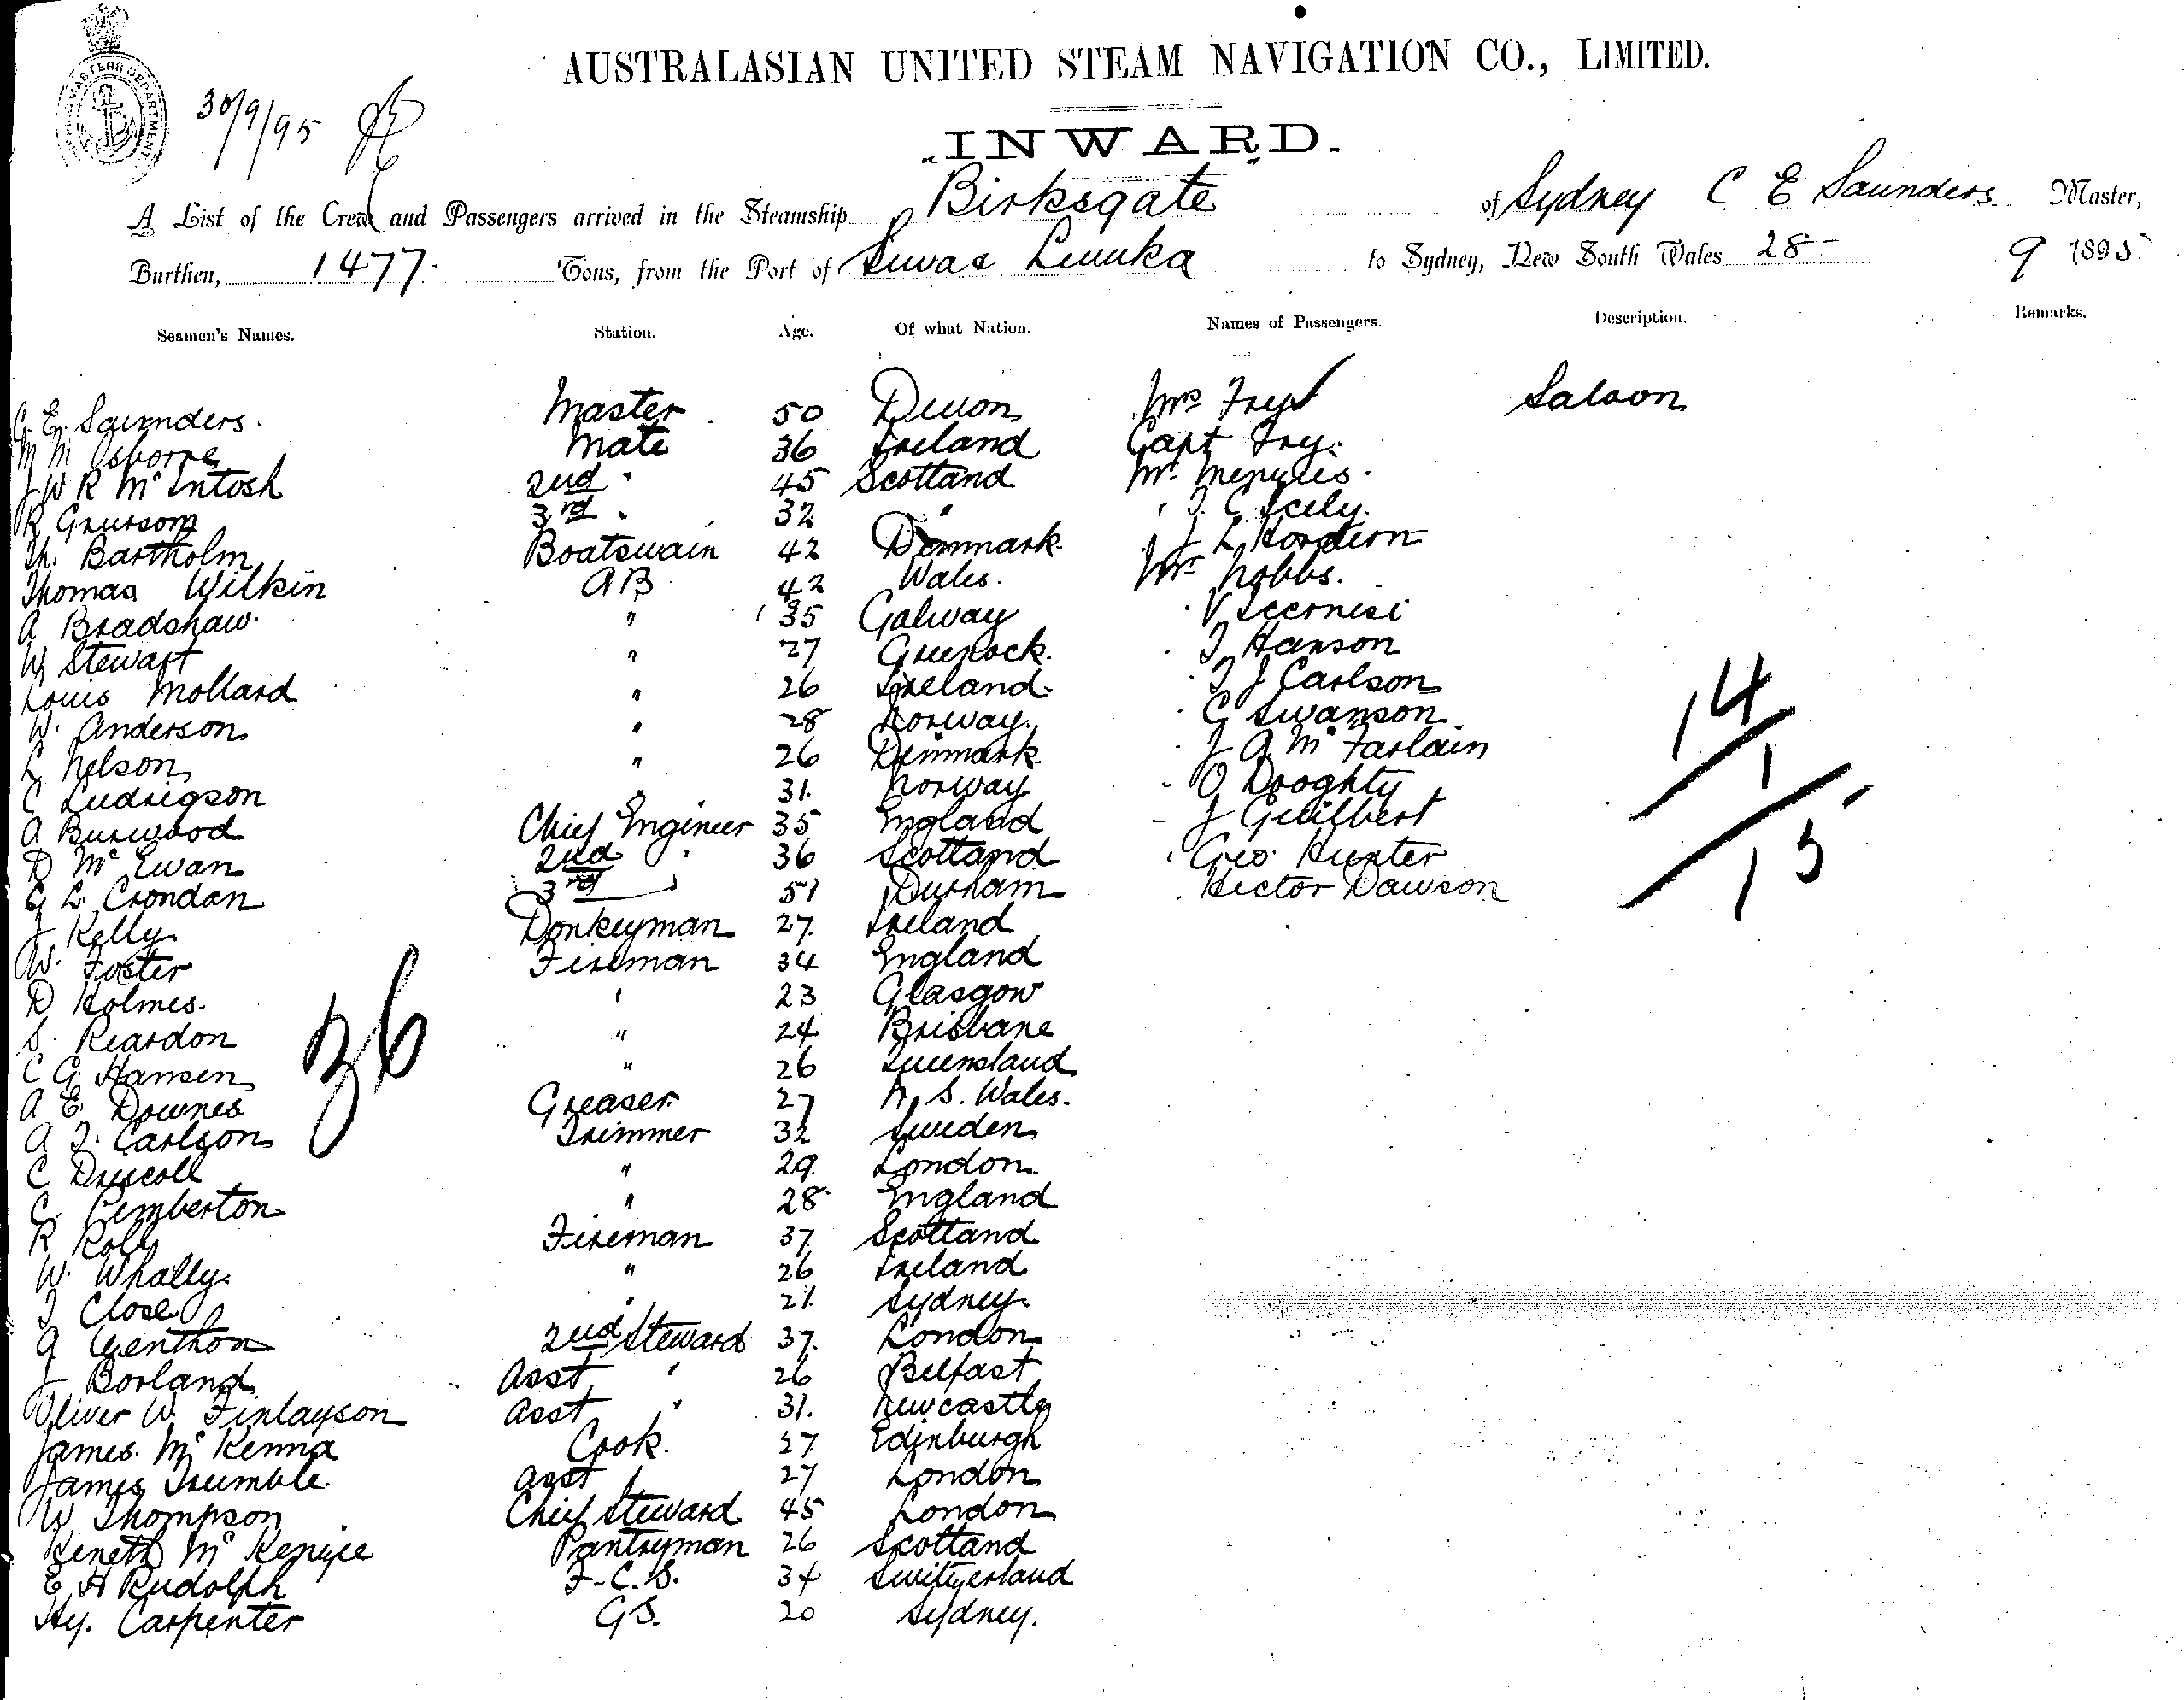 MASTERS DEPARTMENT
30/9/95
AUSTRALASIAN UNITED STEAM NAVIGATION CO., LIMITED.
INWARD.
A List of the Crew and Passengers arrived in the Steamship Birksgate of Sydney C E Saunders Master,
Burthen, 1477 Tons, from the Port of Suva & Levuka to Sydney, New South Wales 28- 9 1895
Seamen's Names. Station. Age. Of what Nation. Names of Passengers. Description. Remarks.
C. E. Saunders. Master 50 Devon Mrs Fry Saloon
M M Osborne Mate 36 Ireland Capt Fry.
J W R McIntosh 2nd " 45 Scotland Mr. Menzies.
R Grursom 3rd " 32 " " T. C. Icely.
Th. Bartholm Boatswain 42 Denmark " J L Hordern
Thomas Wilkin AB 42 Wales. Mr Nobbs.
A Bradshaw. " 35 Galway " V
W Stewart " 27 Greenock. " T Hanson
Louis Mollard " 26 Ireland. " T J Carlson
W. Anderson " 28 Norway. " G Swanson
L Nelson " 26 Denmark " J A McFarlain
C Ludvigson " 31. Norway " O Doughty
A Burwood Chief Engineer 35 England " J Guilbert
D McEwan 2nd " 36 Scotland " Geo. Hunter
G L. Crondan 3rd " 51 Durham " Hector Dawson
J Kelly Donkeyman 27. Ireland
W. Foster Fireman 34 England
D Holmes. " 23 Glasgow
S. Reardon " 24 Brisbane
C G Hansen " 26 Queensland
A E. Downes Greaser 27 N. S. Wales.
A J. Carlson Trimmer 32 Sweden
C Driscoll " 29. London.
C. Pemberton " 28. England
R Fireman 37 Scotland
W. Whally. " 26 Ireland
J Close " 21. Sydney.
A 2nd Steward 37. London
J Borland Asst " 26 Belfast
Oliver W. Finlayson Asst " 31. Newcastle
James. McKenna Cook. 27 Edinburgh
James Trumble. Asst " 27 London
W Thompson Chief Steward 45 London
Keneth McKenzie Pantryman 26 Scotland
E. H Rudolph F.C.S. 34 Switzerland
Hy. Carpenter G.S. 20 Sydney.
36
14
1
15